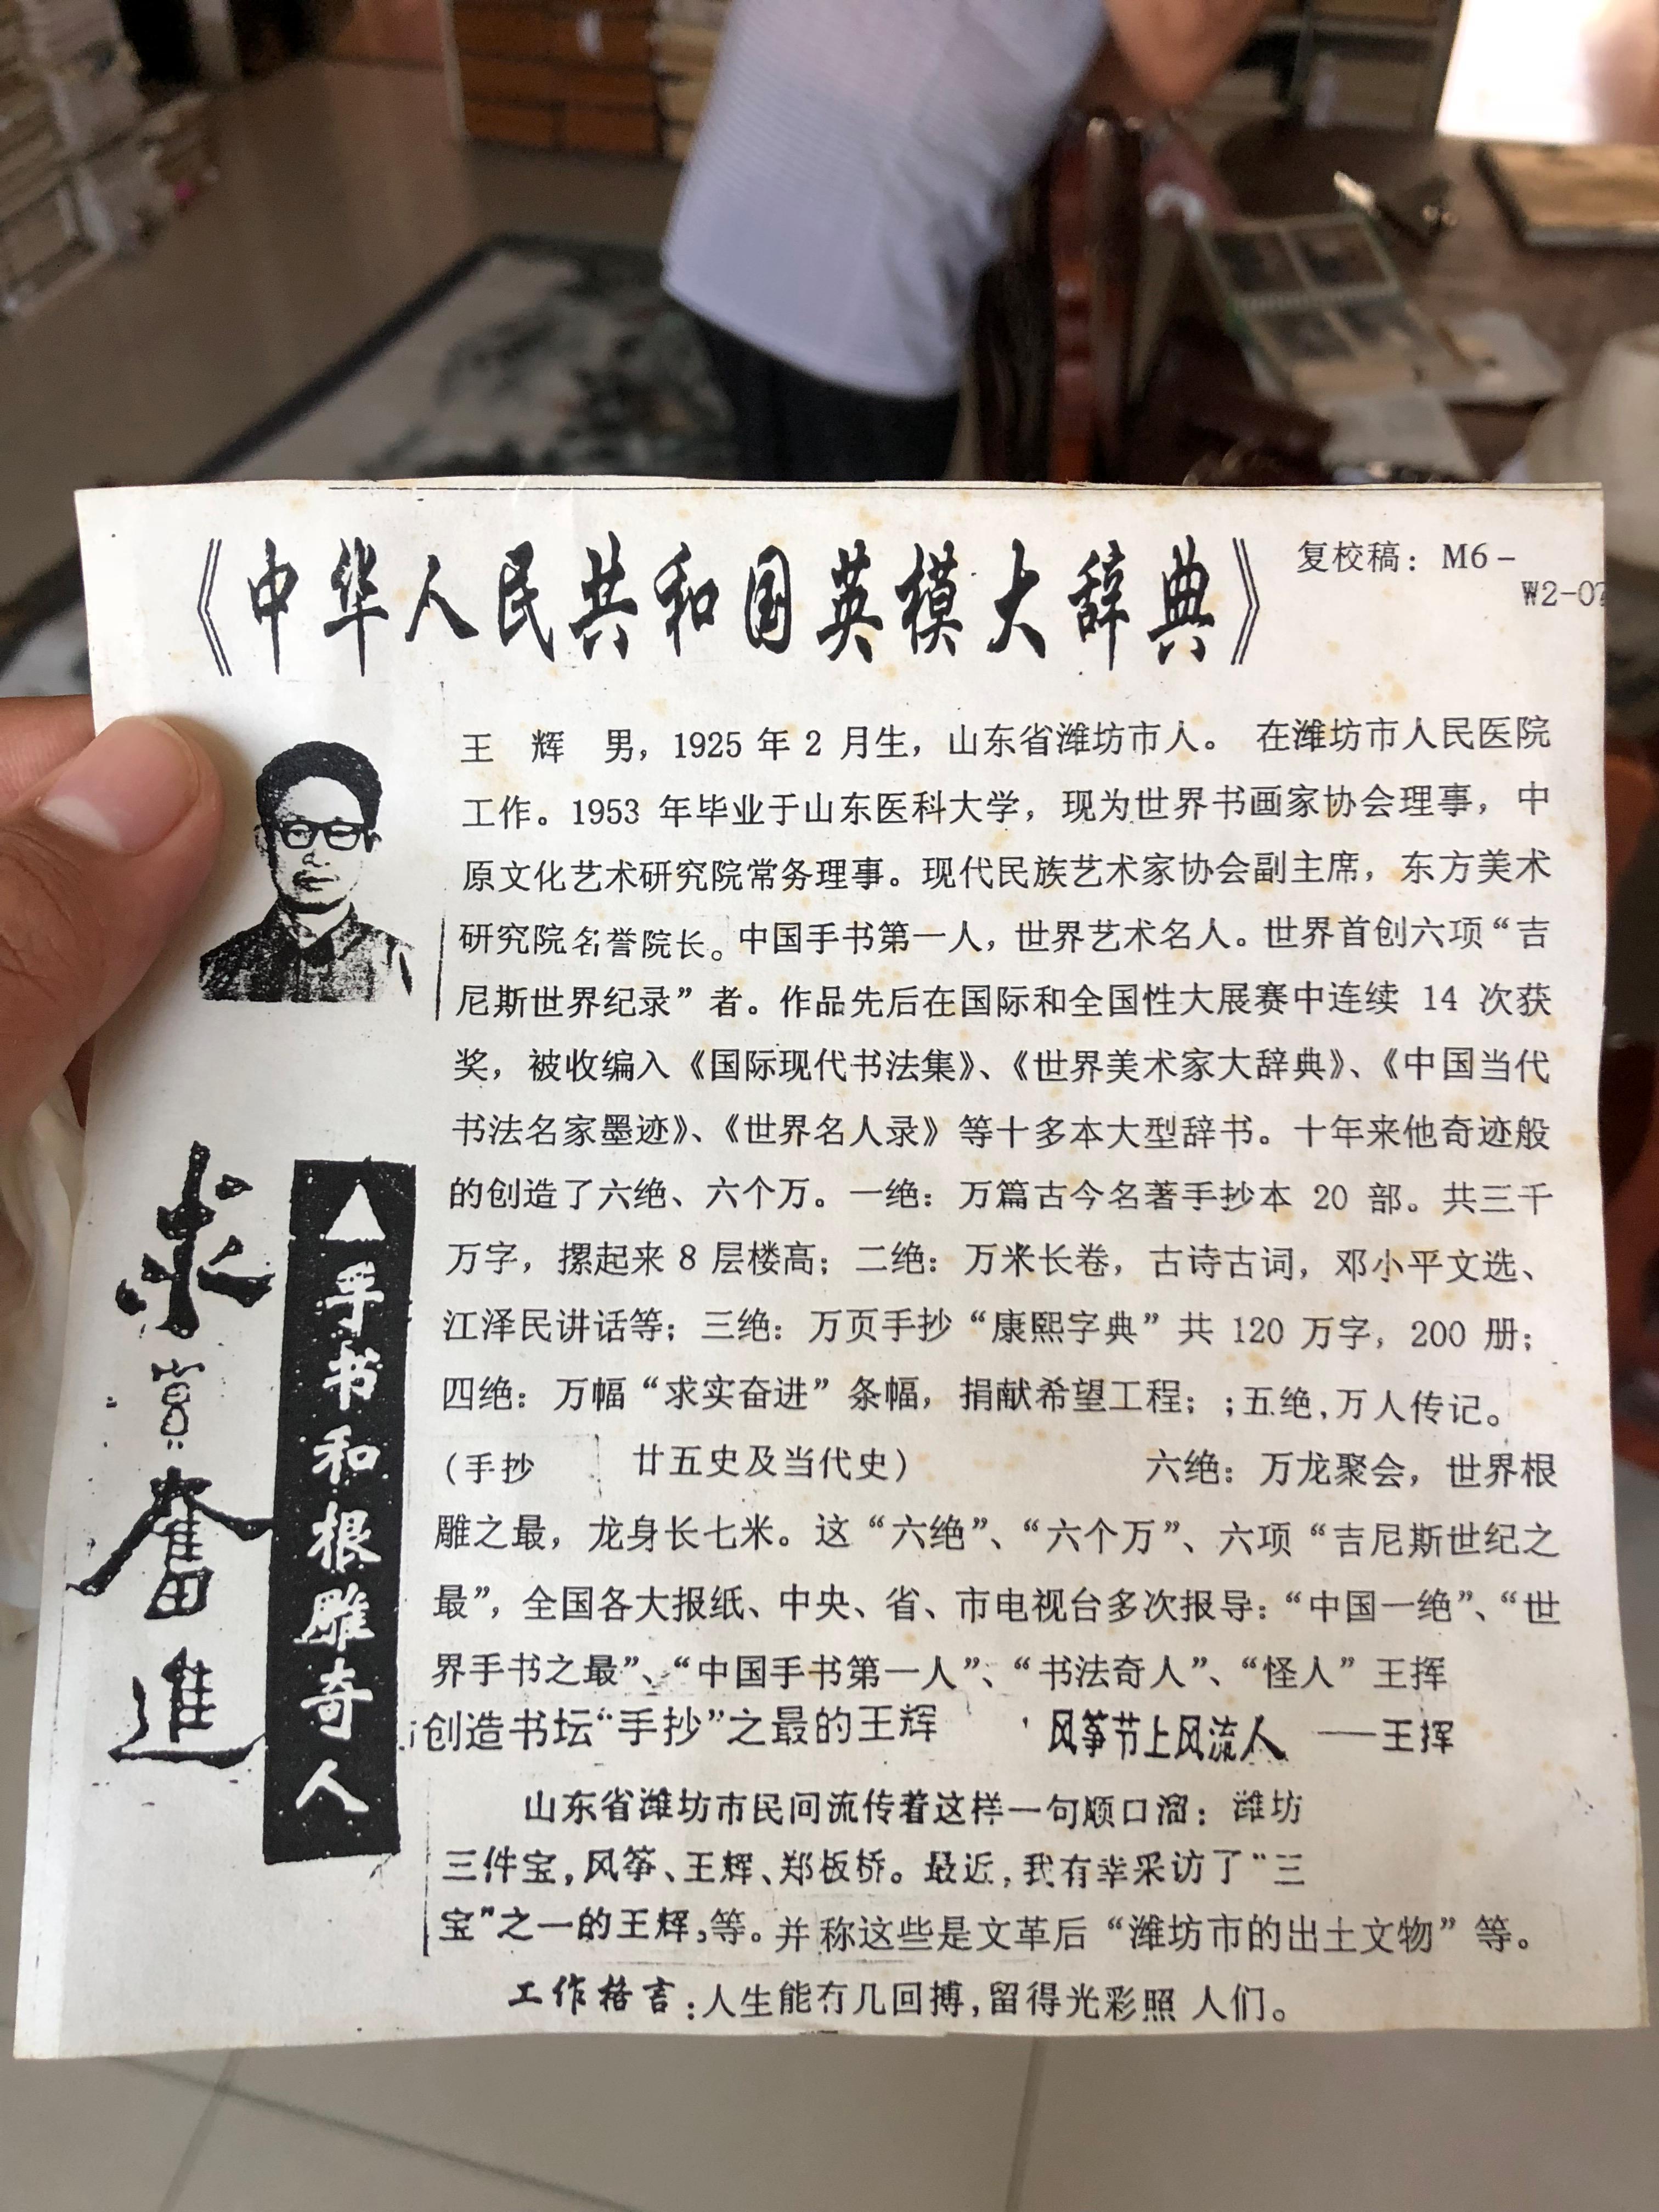 《中华人民共和国英模大辞典》
复校稿：M6-
W2-07
王 辉 男，1925 年 2 月生，山东省潍坊市人。 在潍坊市人民医院
工作。1953 年毕业于山东医科大学，现为世界书画家协会理事，中
原文化艺术研究院常务理事。现代民族艺术家协会副主席，东方美术
研究院名誉院长。中国手书第一人，世界艺术名人。世界首创六项“吉
尼斯世界纪录”者。作品先后在国际和全国性大展赛中连续 14 次获
奖，被收编入《国际现代书法集》、《世界美术家大辞典》、《中国当代
书法名家墨迹》、《世界名人录》等十多本大型辞书。十年来他奇迹般
的创造了六绝、六个万。一绝：万篇古今名著手抄本 20 部。共三千
万字，摞起来 8 层楼高；二绝：万米长卷，古诗古词，邓小平文选、
江泽民讲话等；三绝：万页手抄“康熙字典”共 120 万字，200 册；
四绝：万幅“求实奋进”条幅，捐献希望工程；；五绝，万人传记。
（手抄 廿五史及当代史） 六绝：万龙聚会，世界根
雕之最，龙身长七米。这“六绝”、“六个万”、六项“吉尼斯世纪之
最”，全国各大报纸、中央、省、市电视台多次报导：“中国一绝”、“世
界手书之最”、“中国手书第一人”、“书法奇人”、“怪人”王挥
创造书坛“手抄”之最的王辉 风筝节上风流人 ——王挥
山东省潍坊市民间流传着这样一句顺口溜：潍坊
三件宝，风筝、王辉、郑板桥。最近，我有幸采访了“三
宝”之一的王辉，等。并称这些是文革后“潍坊市的出土文物”等。
工作格言：人生能有几回搏，留得光彩照 人们。
求實奮進
▲手书和根雕奇人